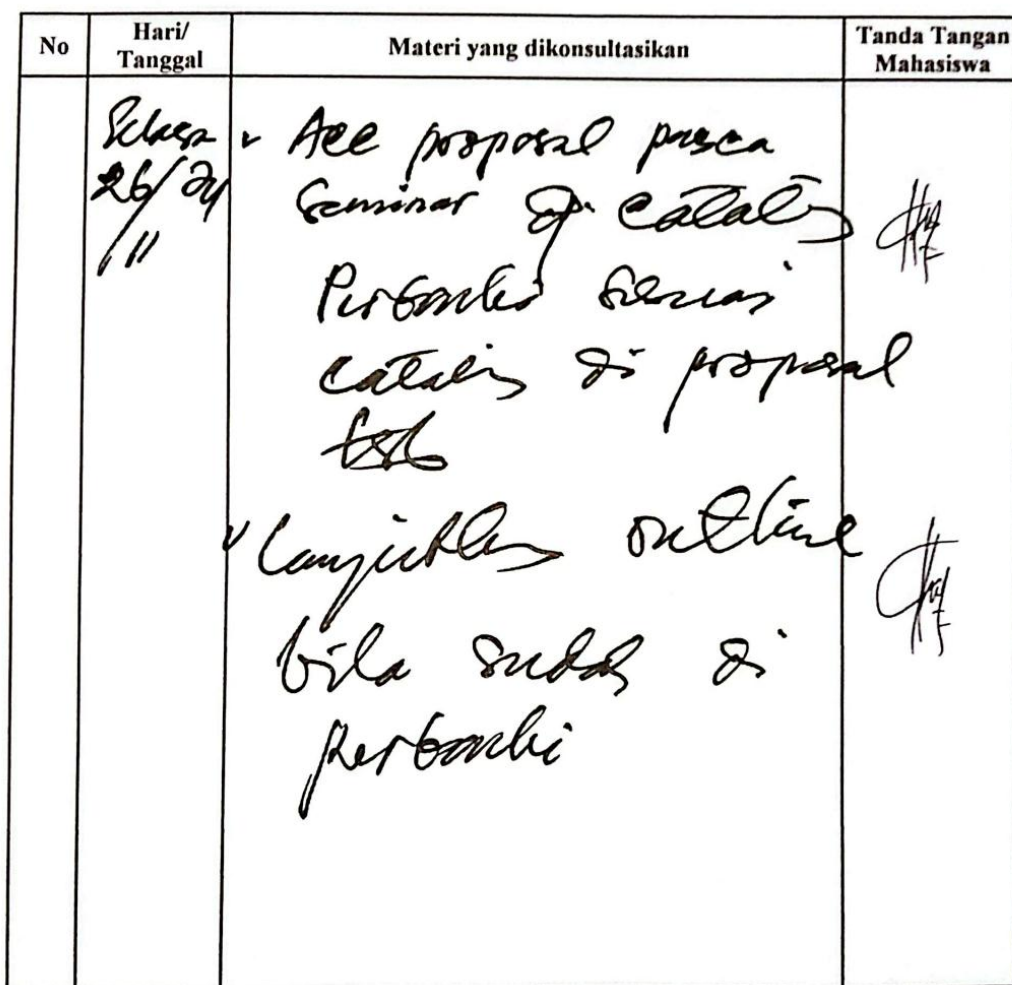 No
Hari/
Tanggal
Materi yang dikonsultasikan
Tanda Tangan
Mahasiswa
Selasa
26/24
/11
Acc proposal pasca
Seminar dg catatan
Perbaiki sesuai
catatan di proposal
tsb
Lanjutkan outline
bila sudah di
perbaiki